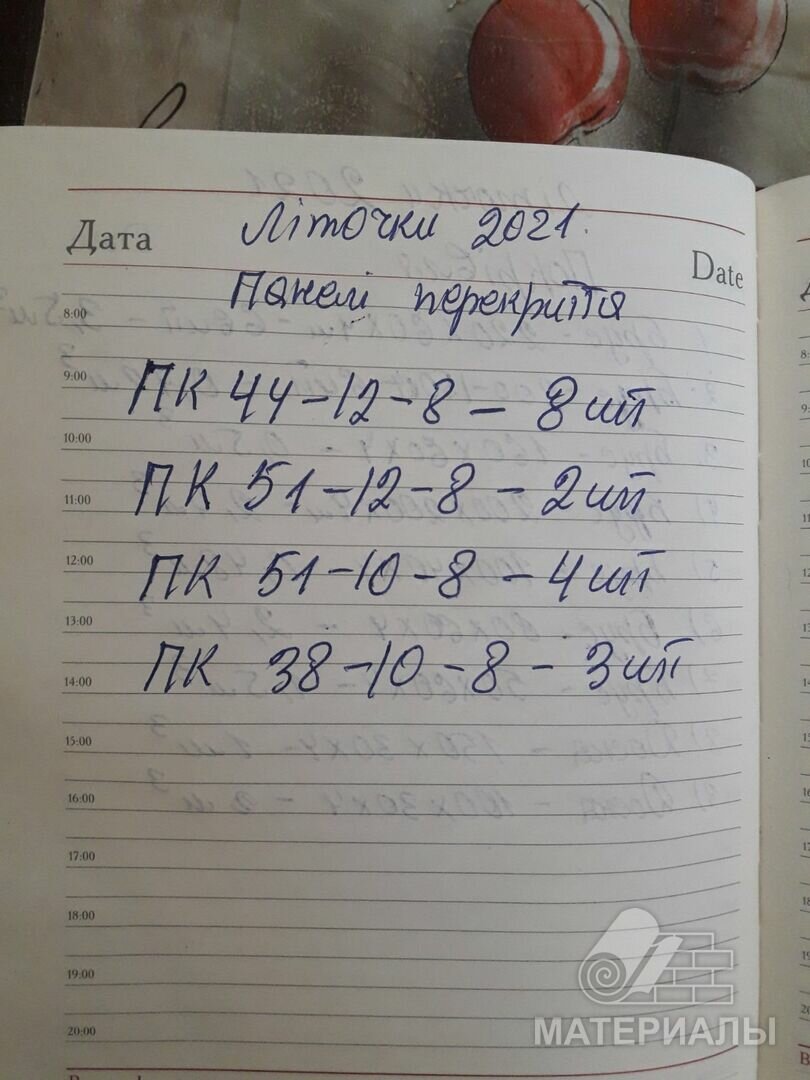 Дата
Літочки 2021.
Date
Панелі перекриття
8:00
9:00
ПК 44-12-8 - 8шт
10:00
11:00
ПК 51-12-8 - 2шт
12:00
ПК 51-10-8 - 4шт
13:00
14:00
ПК 38-10-8 - 3шт
15:00
16:00
17:00
18:00
19:00
20:00
МАТЕРИАЛЫ